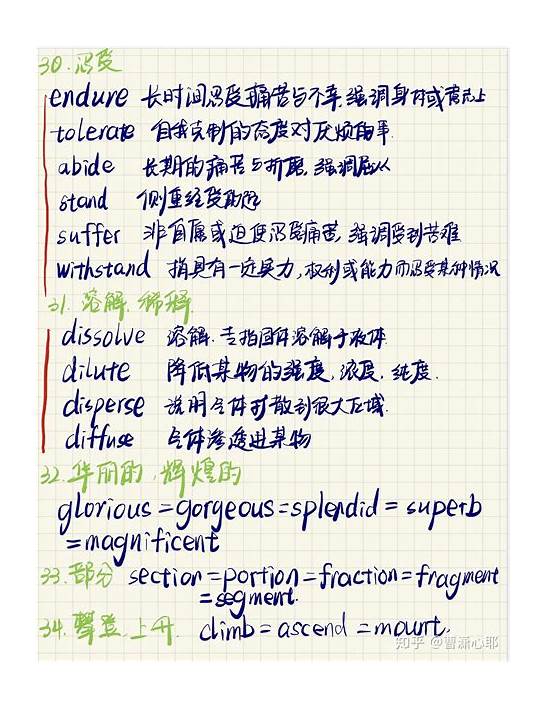 30.忍受
endure 长时间忍受痛苦与不幸,强调身体或意志上
tolerate 自我克制的态度对厌烦的事
abide 长期的痛苦与折磨,强调屈从
stand 侧重经受的起
suffer 非自愿或迫使忍受痛苦,强调受到苦难
withstand 指具有一定实力,权利或能力而忍受某种情况
31.溶解,稀释
dissolve 溶解.专指固体溶解于液体
dilute 降低某物的强度,浓度,纯度.
disperse 说明气体对散到很大区域.
diffuse 气体渗透进某物
32.华丽的,辉煌的
glorious=gorgeous=splendid=superb
=magnificent
33.部分 section=portion=fraction=fragment
=segment.
34.攀登,上升. climb=ascend=mount.
知乎 @曹潇心耶